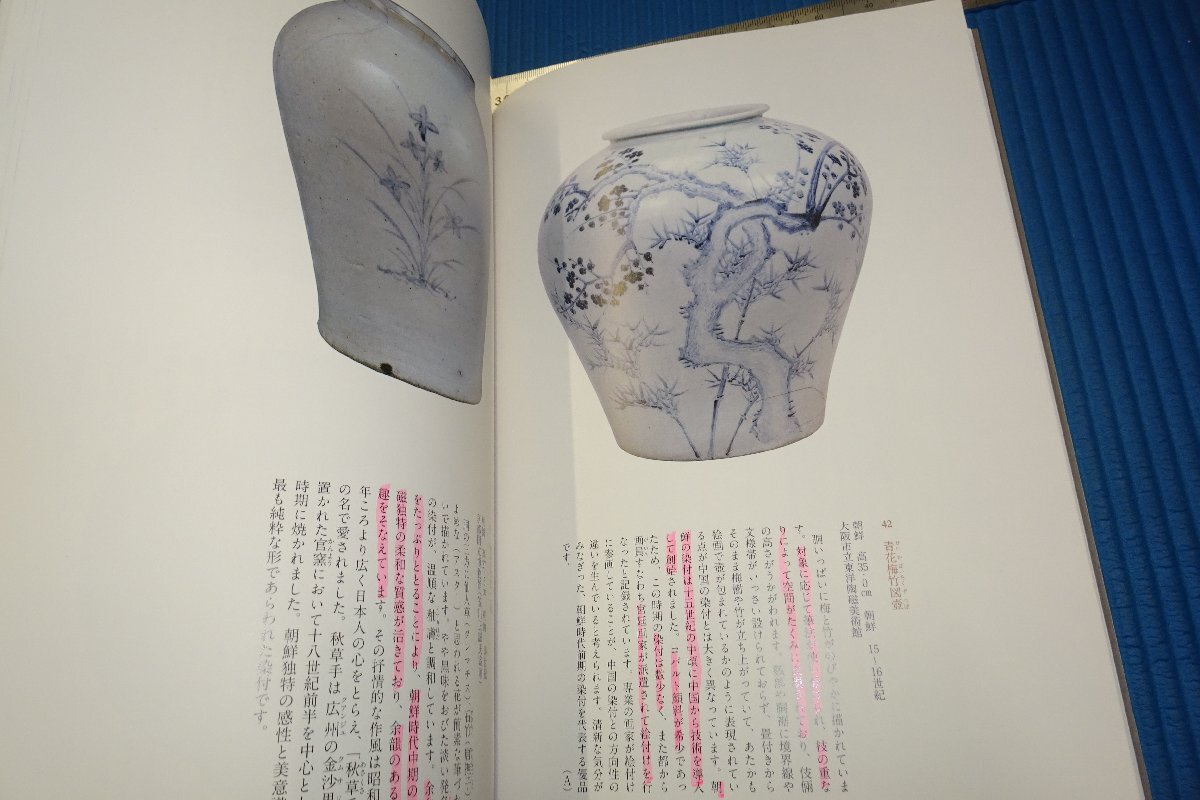 42
青花梅竹図壺
朝鮮　高35.0㎝　朝鮮　15–16世紀
大阪市立東洋陶磁美術館
胴いっぱいに梅と竹がのびやかに描かれていま
す。対象に応じて
枝の重な
りによって空間がたくみに
おり、伎倆
の高さがうかがわれます。
胴裾に境界線や
文様帯がいっさい設けられておらず、畳付きから
そのまま梅樹や竹が立ち上がっていて、あたかも
絵画で壺が包まれているかのように表現されてい
る点が中国の染付とは大きく異なっています。朝
鮮の染付は十五世紀の中頃に中国から技術を導入
して創始されました。コバルト顔料が希少であっ
たため、この時期の染付は数少なく、また都から
画員すなわち宮廷画家が派遣されて絵付けを行
なったと記録されています。専業の画家が絵付け
に参画していることが、中国の染付との方向性の
違いを生んでいると考えられます。清新な気分が
みなぎった、朝鮮時代前期の染付を代表する優品
です。
（A）
いで描かれています。やや黒味をおびた淡い発色
の染付が、温順な釉調と調和しています。余
をたっぷりととることにより、朝鮮時代中期の
磁独特の柔和な質感が活きており、余韻のある
趣をそなえています。その抒情的な作風は昭和
年ころより広く日本人の心をとらえ、「秋草手
の名で愛されました。秋草手は広州の金沙里
置かれた官窯において十八世紀前半を中心とし
時期に焼かれました。朝鮮独特の感性と美意
最も純粋な形であらわれた染付です。